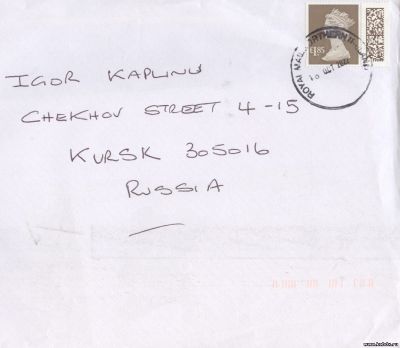 IGOR KAPLINU
CHEKHOV STREET 4-15
KURSK 305016
RUSSIA
£1.85
ROYAL MAIL NORTHERN IRELAND
10 OCT 2022
www.kadobi.ru